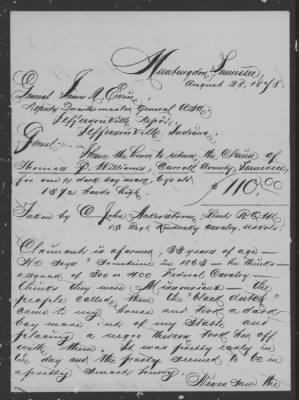 Huntingdon, Tennessee,
August 28, 1878.
General James A. Ekin,
Deputy Quartermaster General U.S.A.
Jeffersonville Depot,
Jeffersonville, Indiana,
General:—
I have the honor to return the claim of
Thomas P. Williams, Carroll County, Tennessee,
for one (1) dark bay mare, 6 yrs old,
15 1/2 hands high, $110.00
Taken by John
Kentucky Cavalry, U.S. Vols.
Claimant is a farmer, 53 years of age —
He says "Sometime 1863 — he thinks —
a squad of 300 or 400 Federal Cavalry —
thinks they were Missourians — the
people called them the "black dutch"
came to my house and took a dark
bay mare out of my stable and
placing a negro thereon took her off
with them. It was pretty early in
the day and the party seemed to be in
a pretty smart hurry.
Never saw the